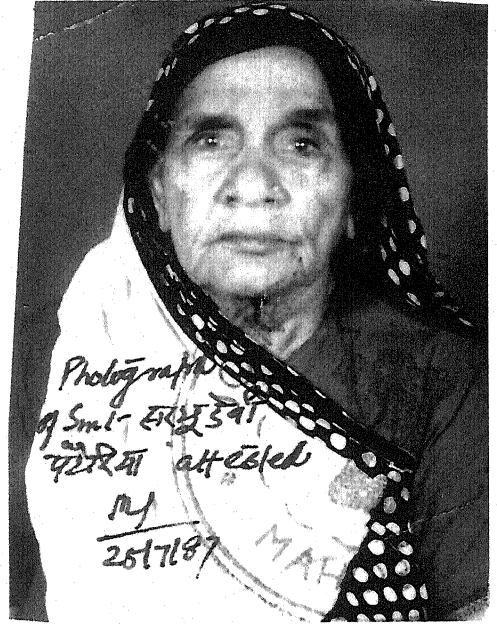 Photograph
of Smt- सरजू देवी
पटैरिया attested
25/7/87
MAH